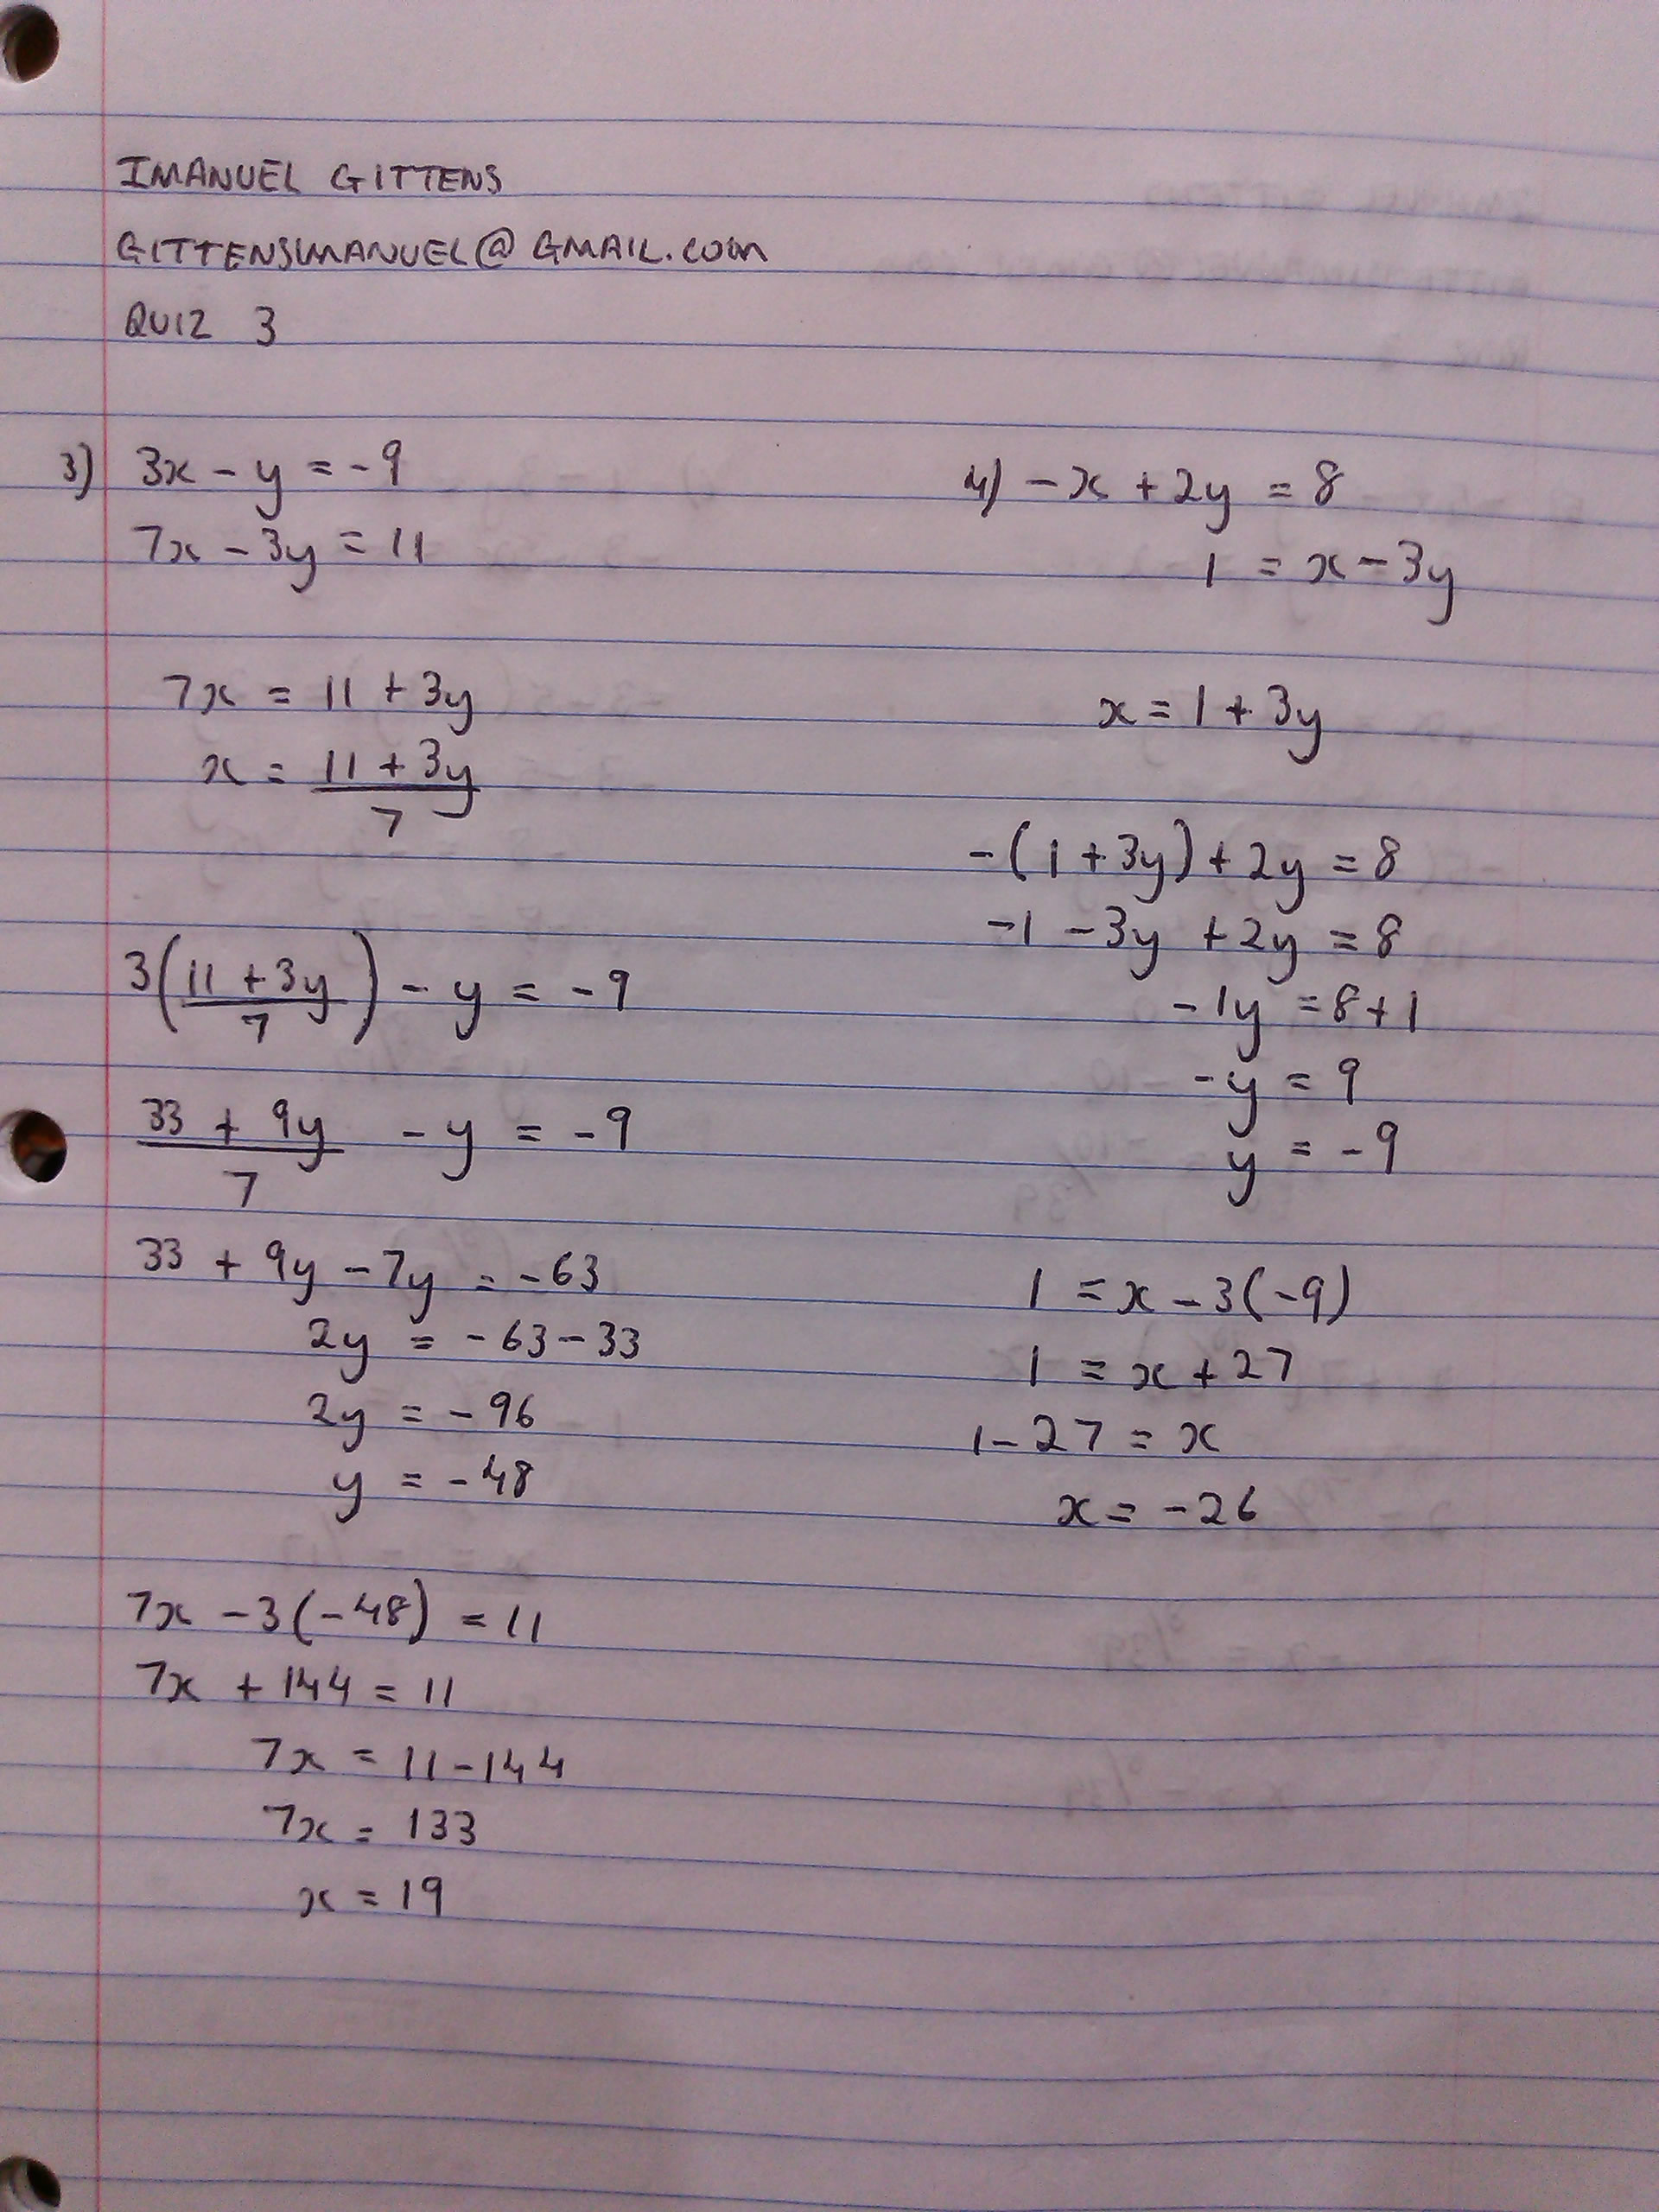 IMANUEL GITTENS
GITTENSIMANUEL@GMAIL.COM
QUIZ 3
3) 3x - y = -9
7x - 3y = 11
7x = 11 + 3y
x = (11 + 3y)/7
3((11 + 3y)/7) - y = -9
(33 + 9y)/7 - y = -9
33 + 9y - 7y = -63
2y = -63 - 33
2y = -96
y = -48
7x - 3(-48) = 11
7x + 144 = 11
7x = 11 - 144
7x = 133
x = 19
4) -x + 2y = 8
1 = x - 3y
x = 1 + 3y
-(1 + 3y) + 2y = 8
-1 - 3y + 2y = 8
-1y = 8 + 1
-y = 9
y = -9
1 = x - 3(-9)
1 = x + 27
1 - 27 = x
x = -26